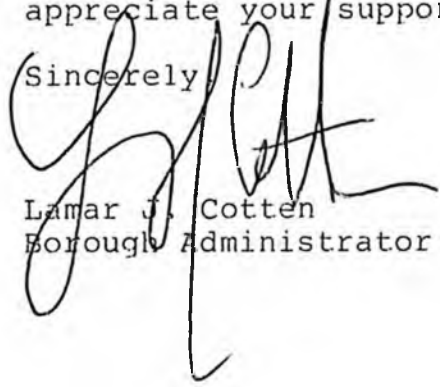 appreciate your support
Sincerely
Lamar J. Cotten
Borough Administrator